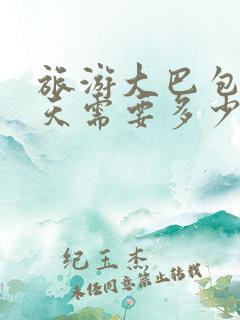 旅游大巴包
天需要多少
纪玉杰
未经同意禁止转载